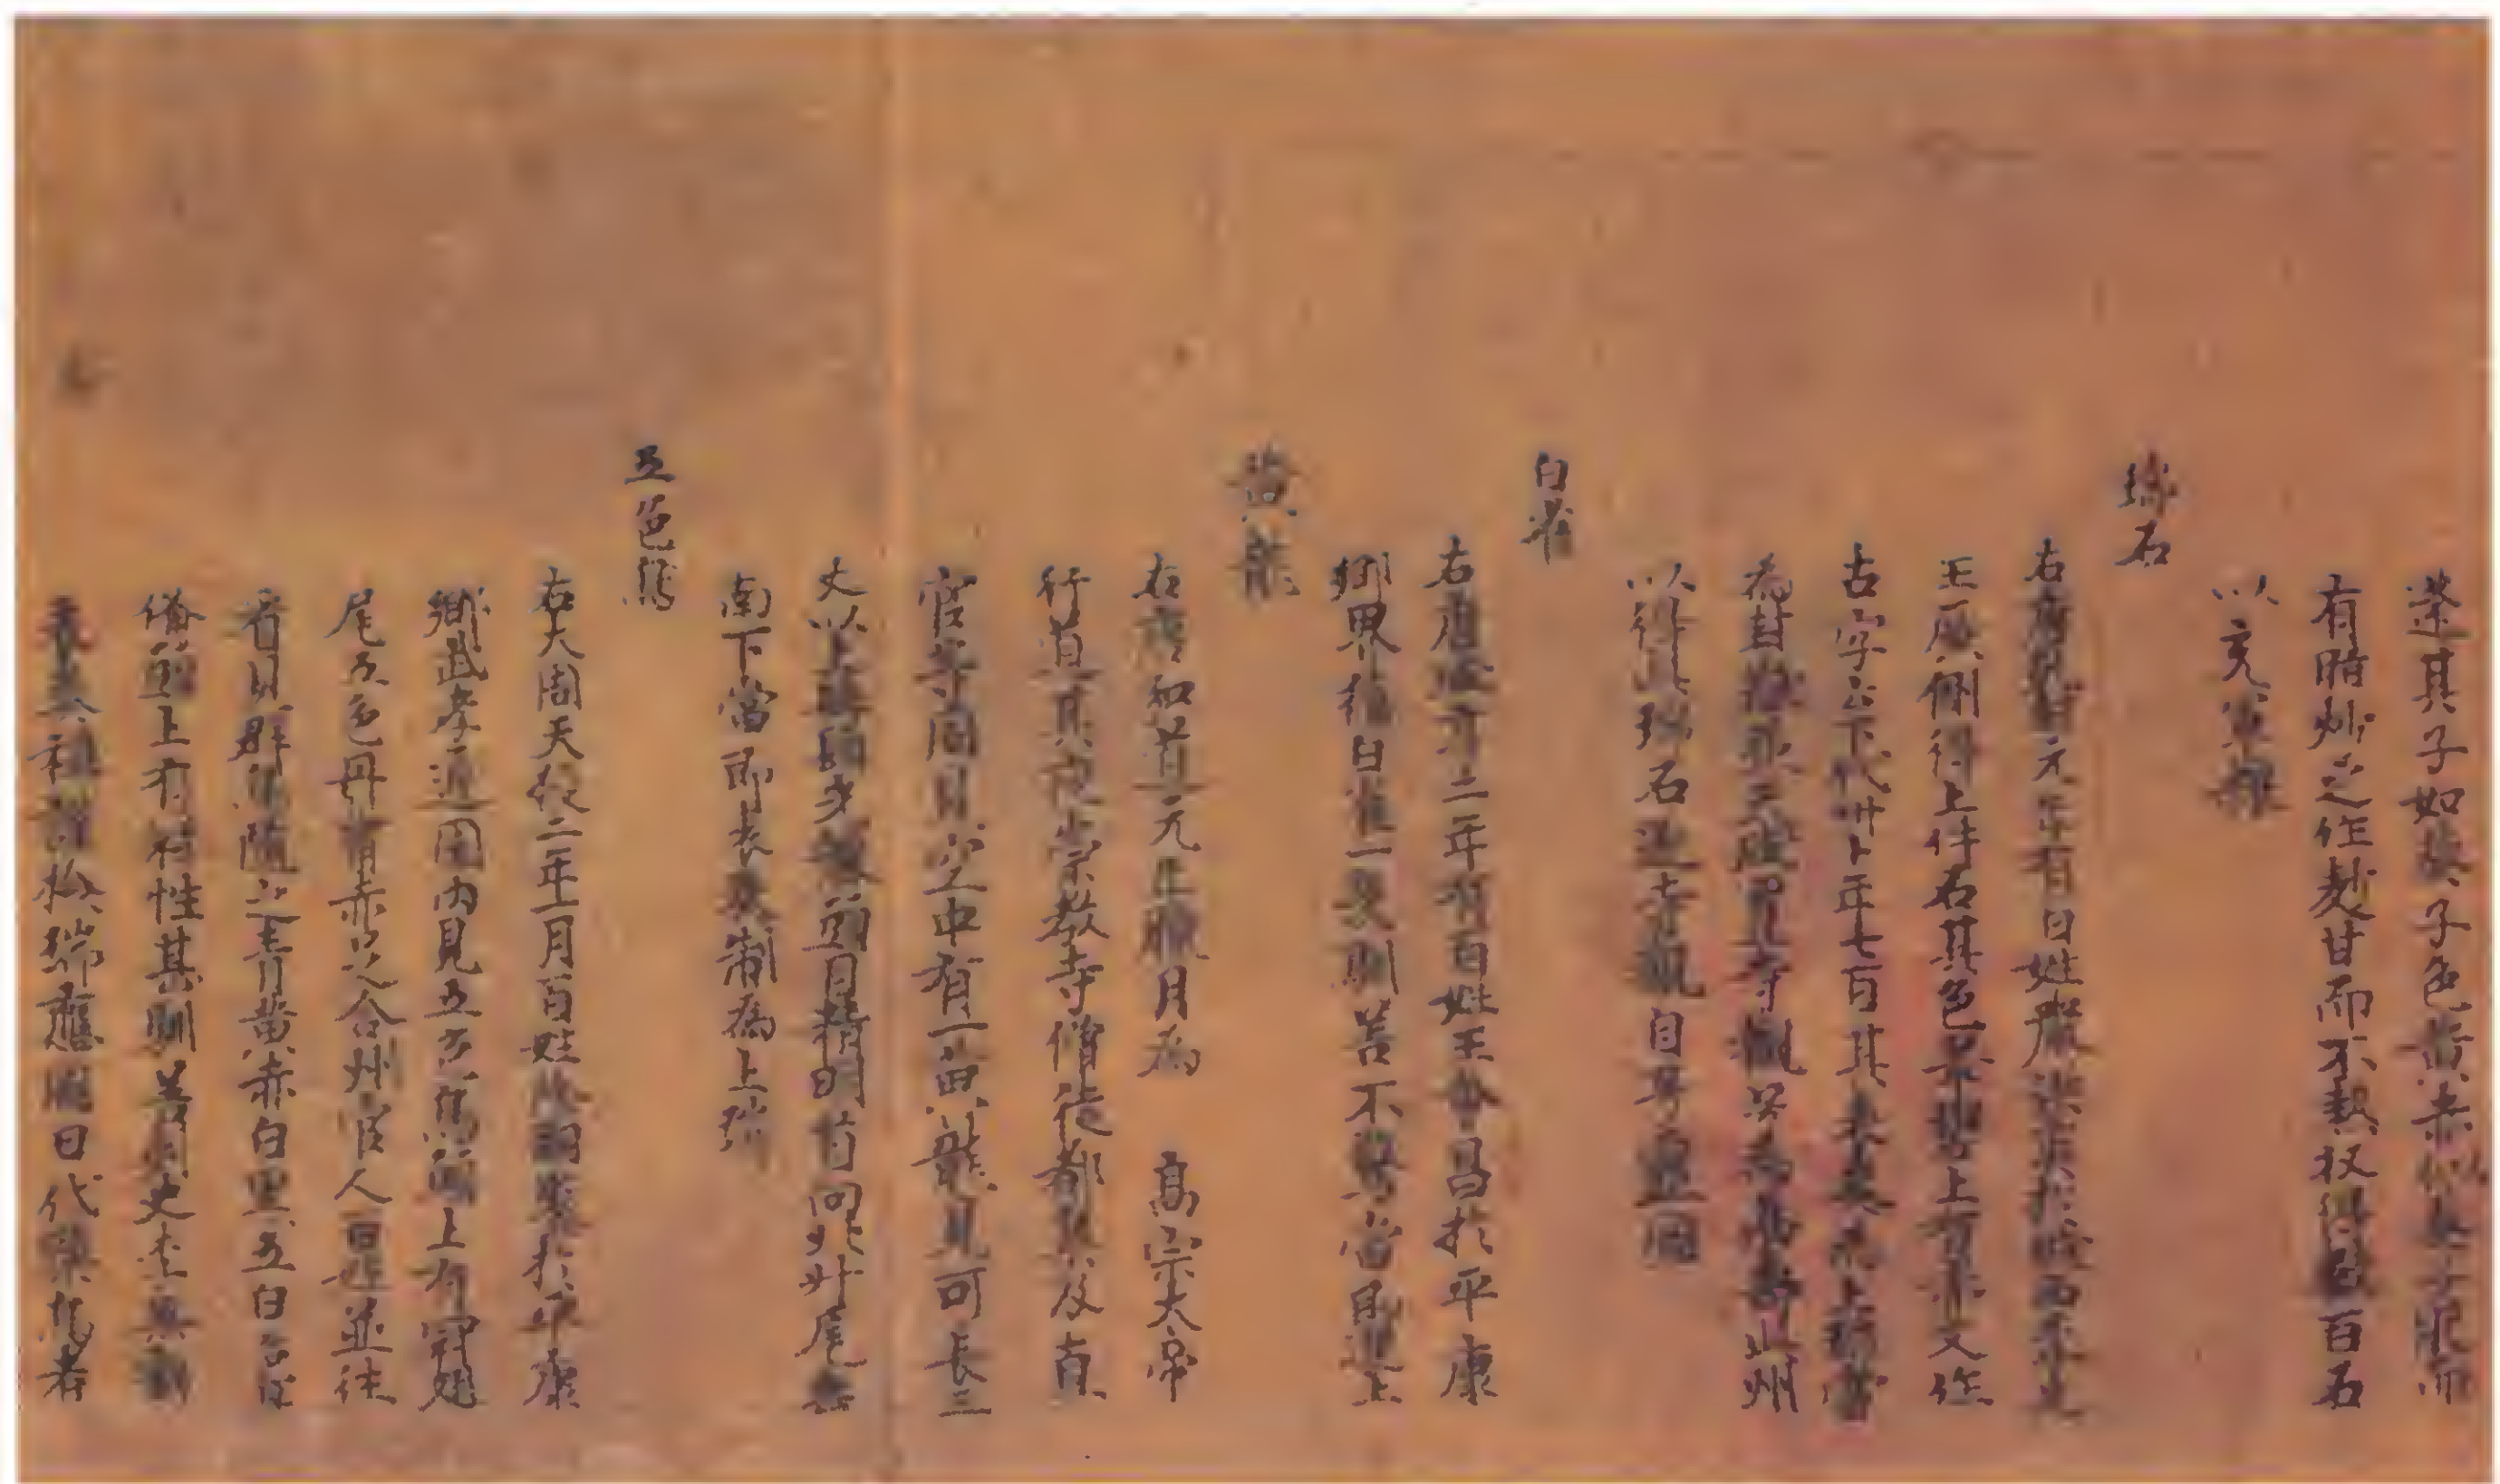 蓬其子如葵子色黃赤似葵子肥而
有脂炒之作麨甘而不熱收得數百石
以充軍糧
瑞石
右唐乾封元年有百姓嚴洪爽於城西李先
王廟側得上件石其色翠碧上有赤文作
古字云下代卅卜年七百其表奏為上瑞當
為封嶽並天置寺觀號為萬壽此州
以得此瑞石遂寺觀自号靈圖
白雀
右唐咸亨二年有百姓王會昌於平康
鄉界獲白雀一雙馴善不驚當即進上
黃龍
右唐弘道元年臘月為 高宗大帝
行道其夜崇教寺僧徒都集及直
官等同見空中有一黃龍見可長三
丈以上髯須光麗頭目精明首向北升尾垂
南下當即表奏制為上瑞
五色鳥
右大周天授二年一月百姓陰嗣鑒於平康
鄉武孝通園內見五色鳥頭上有冠翅
尾五色丹觜赤足合州官人百姓並往
看見群鳥隨之青黃赤白黑五白色具
備頭上有冠性甚馴善刺史李無虧
表奏稱謹檢瑞應圖曰代樂鳥者